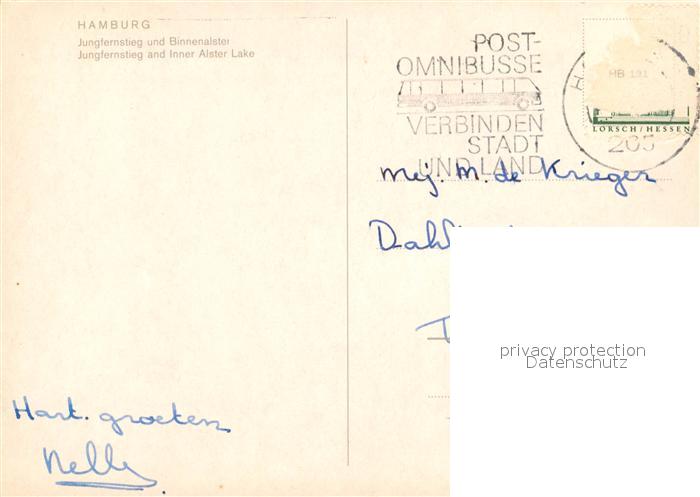 HAMBURG
Jungfernstieg und Binnenalster
Jungfernstieg and Inner Alster Lake
POST-
OMNIBUSSE
VERBINDEN
STADT
UND LAND
HB 191
LORSCH/HESSEN
205
Mej. M. de Krieger
Hart. groeten
Nelly
privacy protection
Datenschutz